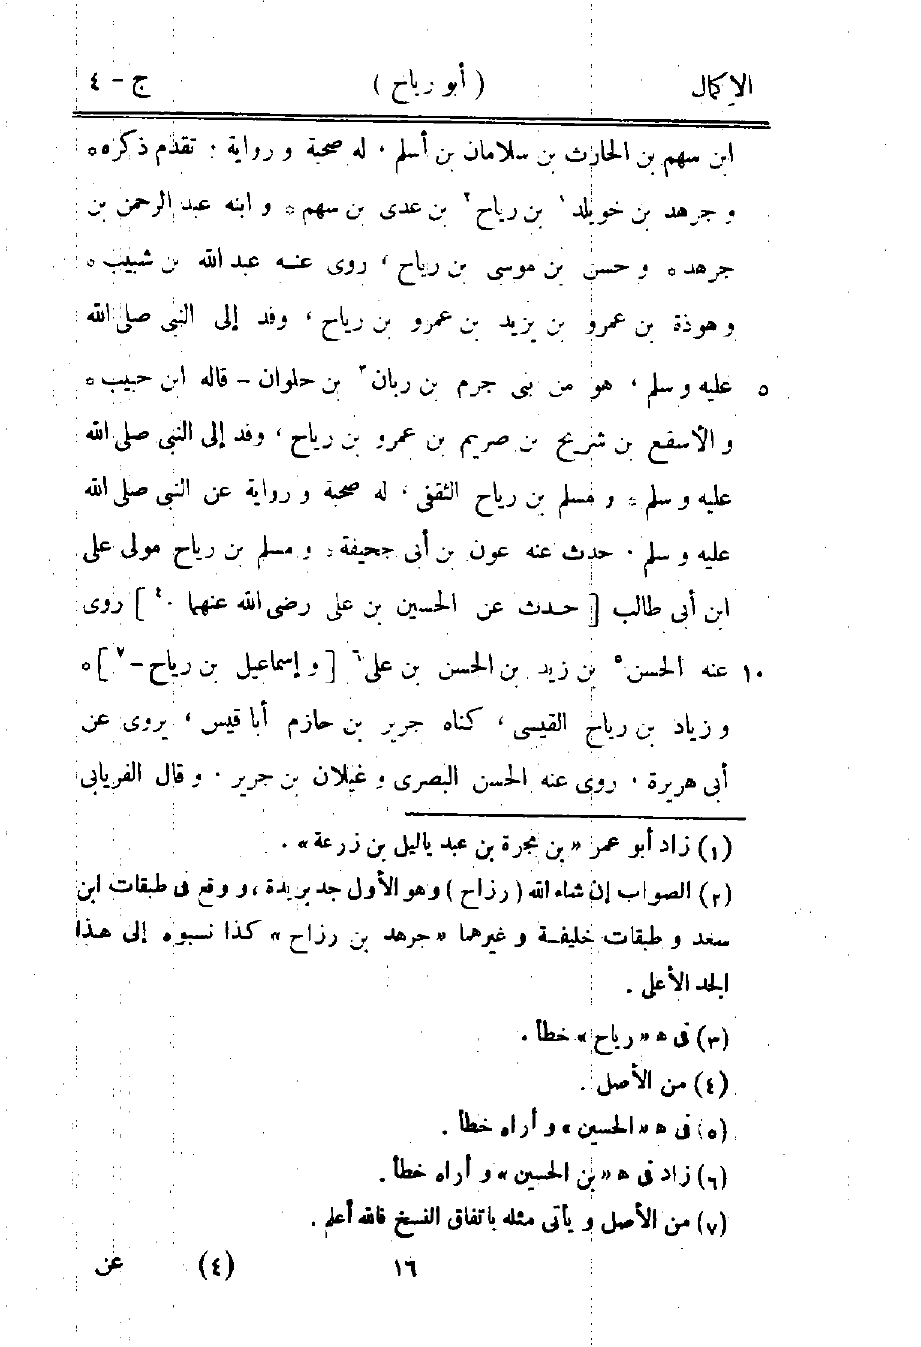 الإكمال ( أبو رياح ) ج - ٤
ابن سهم بن الحارث بن سلامان بن أسلم ، له صحبة و رواية ؛ تقدم ذكره ٥
و جرهد بن خويلد ١ بن رياح ٢ بن عدى بن سهم ٥ و ابنه عبد الرحمن بن
جرهد ٥ و حسن بن موسى بن رياح ، روى عنه عبد الله بن شبيب ٥
و هوذة بن عمرو بن يزيد بن عمرو بن رياح ، وفد إلى النبى صلى الله
٥ عليه و سلم ، هو من بنى جرم بن ربان ٣ بن حلوان - قاله ابن حبيب ٥
و الأسقع بن شريح بن صريم بن عمرو بن رياح ، وفد إلى النبى صلى الله
عليه و سلم ٥ و مسلم بن رياح الثقفى ، له صحبة و رواية عن النبى صلى الله
عليه و سلم . حدث عنه عون بن أبى جحيفة ٥ و مسلم بن رياح مولى على
ابن أبى طالب [ حدث عن الحسين بن على رضى الله عنهما . ٤ ] روى
١٠ عنه الحسن ٥ بن زيد بن الحسن بن على ٦ [ و إسماعيل بن رياح - ٧ ] ٥
و زياد بن رياح القيسى ، كناه جرير بن حازم أبا قيس ، يروى عن
أبى هريرة . روى عنه الحسن البصرى و غيلان بن جرير . و قال الفريابى
(١) زاد أبو عمر « بن مجرة بن عبد ياليل بن زرعة » .
(٢) الصواب إن شاء الله ( رزاح ) وهو الأول جد بريدة ، و وقع فى طبقات ابن
سعد و طبقات خليفة و غيرهما « جرهد بن رزاح » كذا نسبوه إلى هذا
الجد الأعلى .
(٣) فى هـ « رياح » خطأ .
(٤) من الأصل .
(٥) فى هـ « الحسين » و أراه خطأ .
(٦) زاد فى هـ « بن الحسين » و أراه خطأ .
(٧) من الأصل و يأتى مثله باتفاق النسخ فالله أعلم .
١٦ (٤) عن